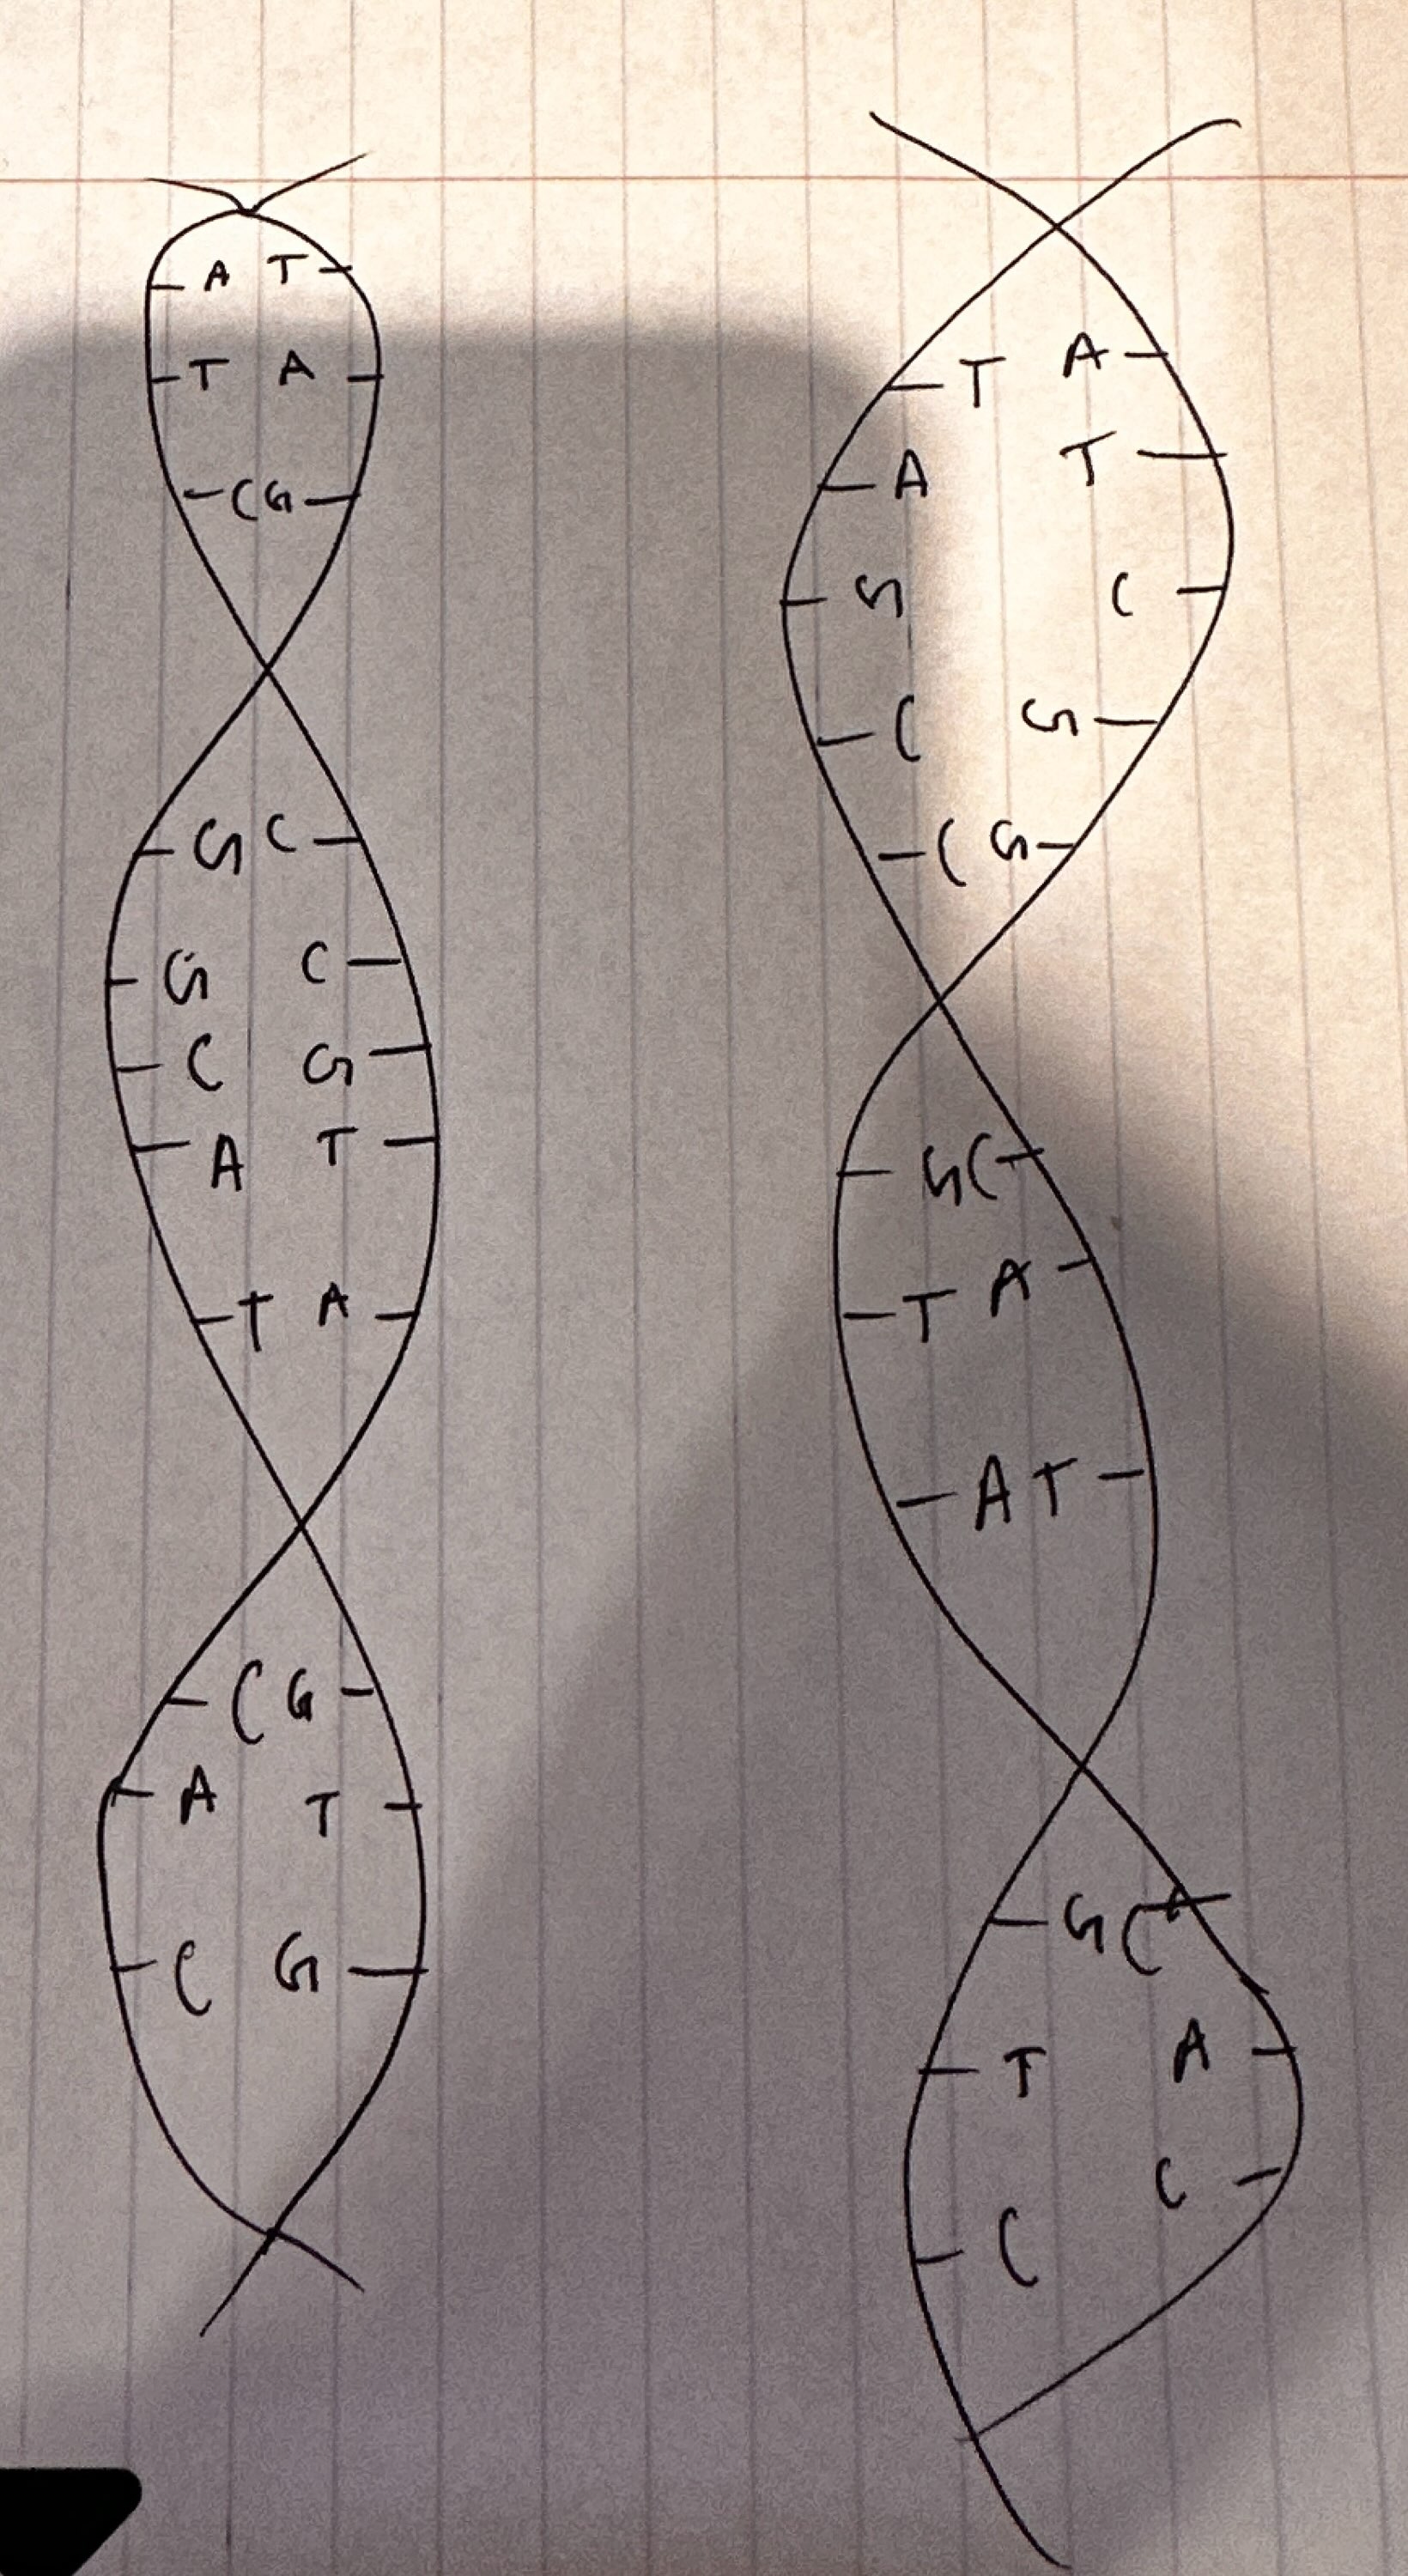 A T
T A
C G
G C
G C
C G
A T
T A
C G
A T
C G
T A
A T
G C
C G
C G
G C
T A
A T
G C
T A
C C